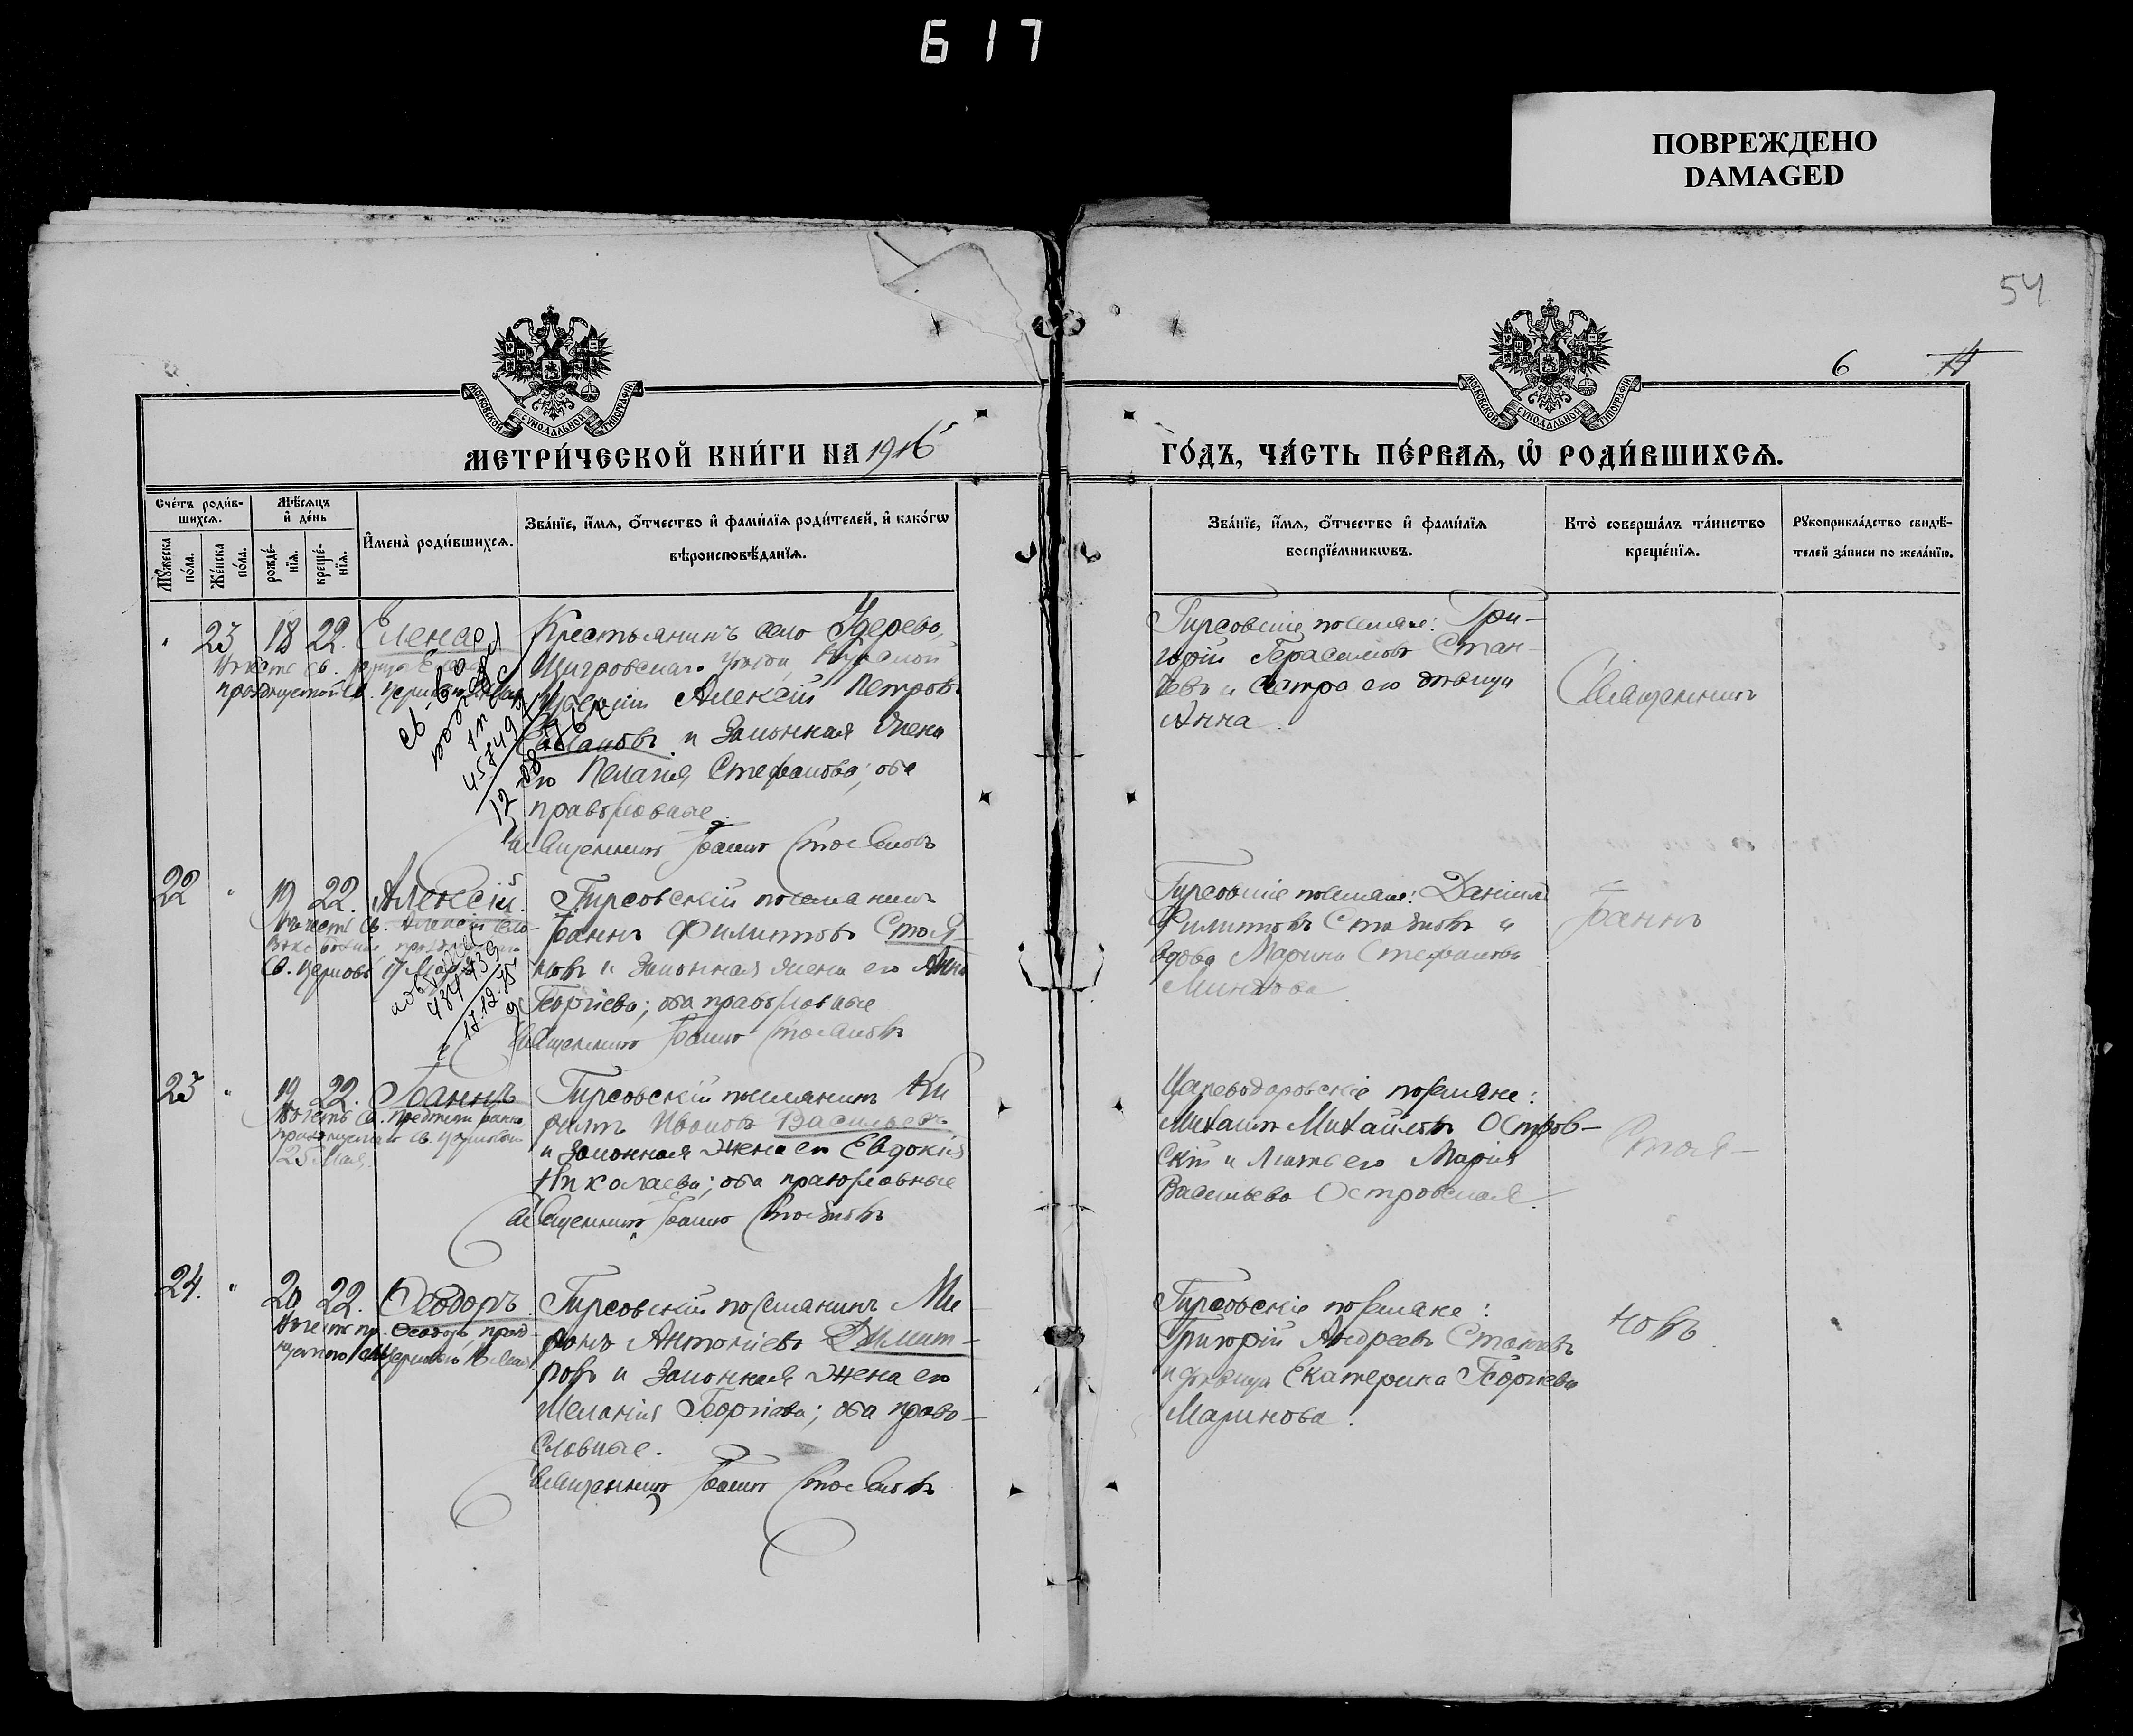 617
ПОВРЕЖДЕНО
DAMAGED
54
6 14
МОСКОВСКОЙ СУНОДАЛЬНОЙ ТИПОГРАФІИ
МОСКОВСКОЙ СУНОДАЛЬНОЙ ТИПОГРАФІИ
МЕТРИ́ЧЕСКОЙ КНИ́ГИ НА 1916
ГО́ДЪ, ЧА́СТЬ ПЕ́РВАЯ, Ѿ РОДИ́ВШИХСЯ.
Сче́тъ роди́в-
шихся.
Му́жеска по́ла.
Же́нска по́ла.
Мѣ́сяцъ
и҆ де́нь
рожде́-нїя.
креще́-нїя.
И҆мена̀ роди́вшихся.
Зва́нїе, и҆́мя, ѻ҆́тчество и҆ фами́лїя роди́телей, и҆ како́гѡ
вѣроисповѣ́данїя.
Зва́нїе, и҆́мя, ѻ҆́тчество и҆ фами́лїя
воспрїе́мникѡвъ.
Кто̀ соверша́лъ та́инство
креще́нїя.
Рꙋкоприкла́дство свидѣ́-
телей за́писи по жела́нїю.
" 23 18 22. Елена
Крестьянинъ село Удерево,
Щигровскаго уѣзда, Курской
губерніи Алексѣй Петровъ
и Законная жена
его Пелагія Стефанова; оба
православные
Священникъ Іоаннъ Стояновъ
Гирсовскіе поселяне: Гри-
горій Герасимовъ Стан-
чевъ и сестра его дѣвица
Анна
Священникъ
22 " 19 22. Алексій.
Въ честь Св. Алексія Чело-
Св. Церковью 17 Мар
17.12.75
Гирсовскій поселянинъ
Іоаннъ Филипповъ Стоя-
новъ и Законная жена его Анна
Георгіева; оба православные
Священникъ Іоаннъ Стояновъ
Гирсовскіе поселяне: Даніилъ
Филипповъ Стояновъ и
вдова Марина Стефанова
Минкова
Іоаннъ
23 " 19 22. Іоаннъ
Въ честь Св. Предтечи Іоанна
празднуемаго Св. Церковью
25 Мая.
Гирсовскій поселянинъ Ки
риллъ Ивановъ Васильевъ
и Законная жена его Евдокія
Николаева; оба православные
Священникъ Іоаннъ Стояновъ
Цареводаровскіе поселяне:
Михаилъ Михайловъ Остров-
скій и мать его Марія
Васильева Островская.
Стоя-
24. " 20 22. Ѳеодоръ.
Въ честь пр. Ѳеодора, празд-
Гирсовскій поселянинъ Ми
ронъ Антоніевъ Димит-
ровъ и Законная жена его
Меланія Георгіева; оба право-
славные.
Священникъ Іоаннъ Стояновъ
Гирсовскіе поселяне:
Григорій Андреевъ Станковъ
и дѣвица Екатерина Георгіева
Маринова.
новъ.